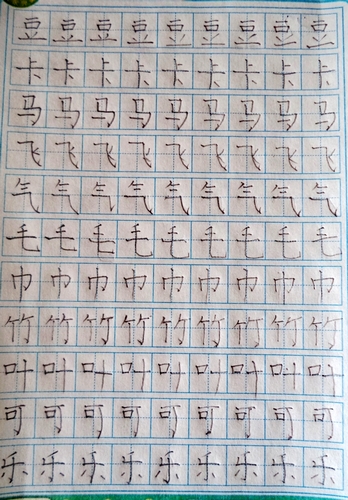 豆 豆 豆 豆 豆 豆 豆 豆 豆
卡 卡 卡 卡 卡 卡 卡 卡 卡
马 马 马 马 马 马 马 马 马
飞 飞 飞 飞 飞 飞 飞 飞 飞
气 气 气 气 气 气 气 气 气
毛 毛 毛 毛 毛 毛 毛 毛 毛
巾 巾 巾 巾 巾 巾 巾 巾 巾
竹 竹 竹 竹 竹 竹 竹 竹 竹
叶 叶 叶 叶 叶 叶 叶 叶 叶
可 可 可 可 可 可 可 可 可
乐 乐 乐 乐 乐 乐 乐 乐 乐